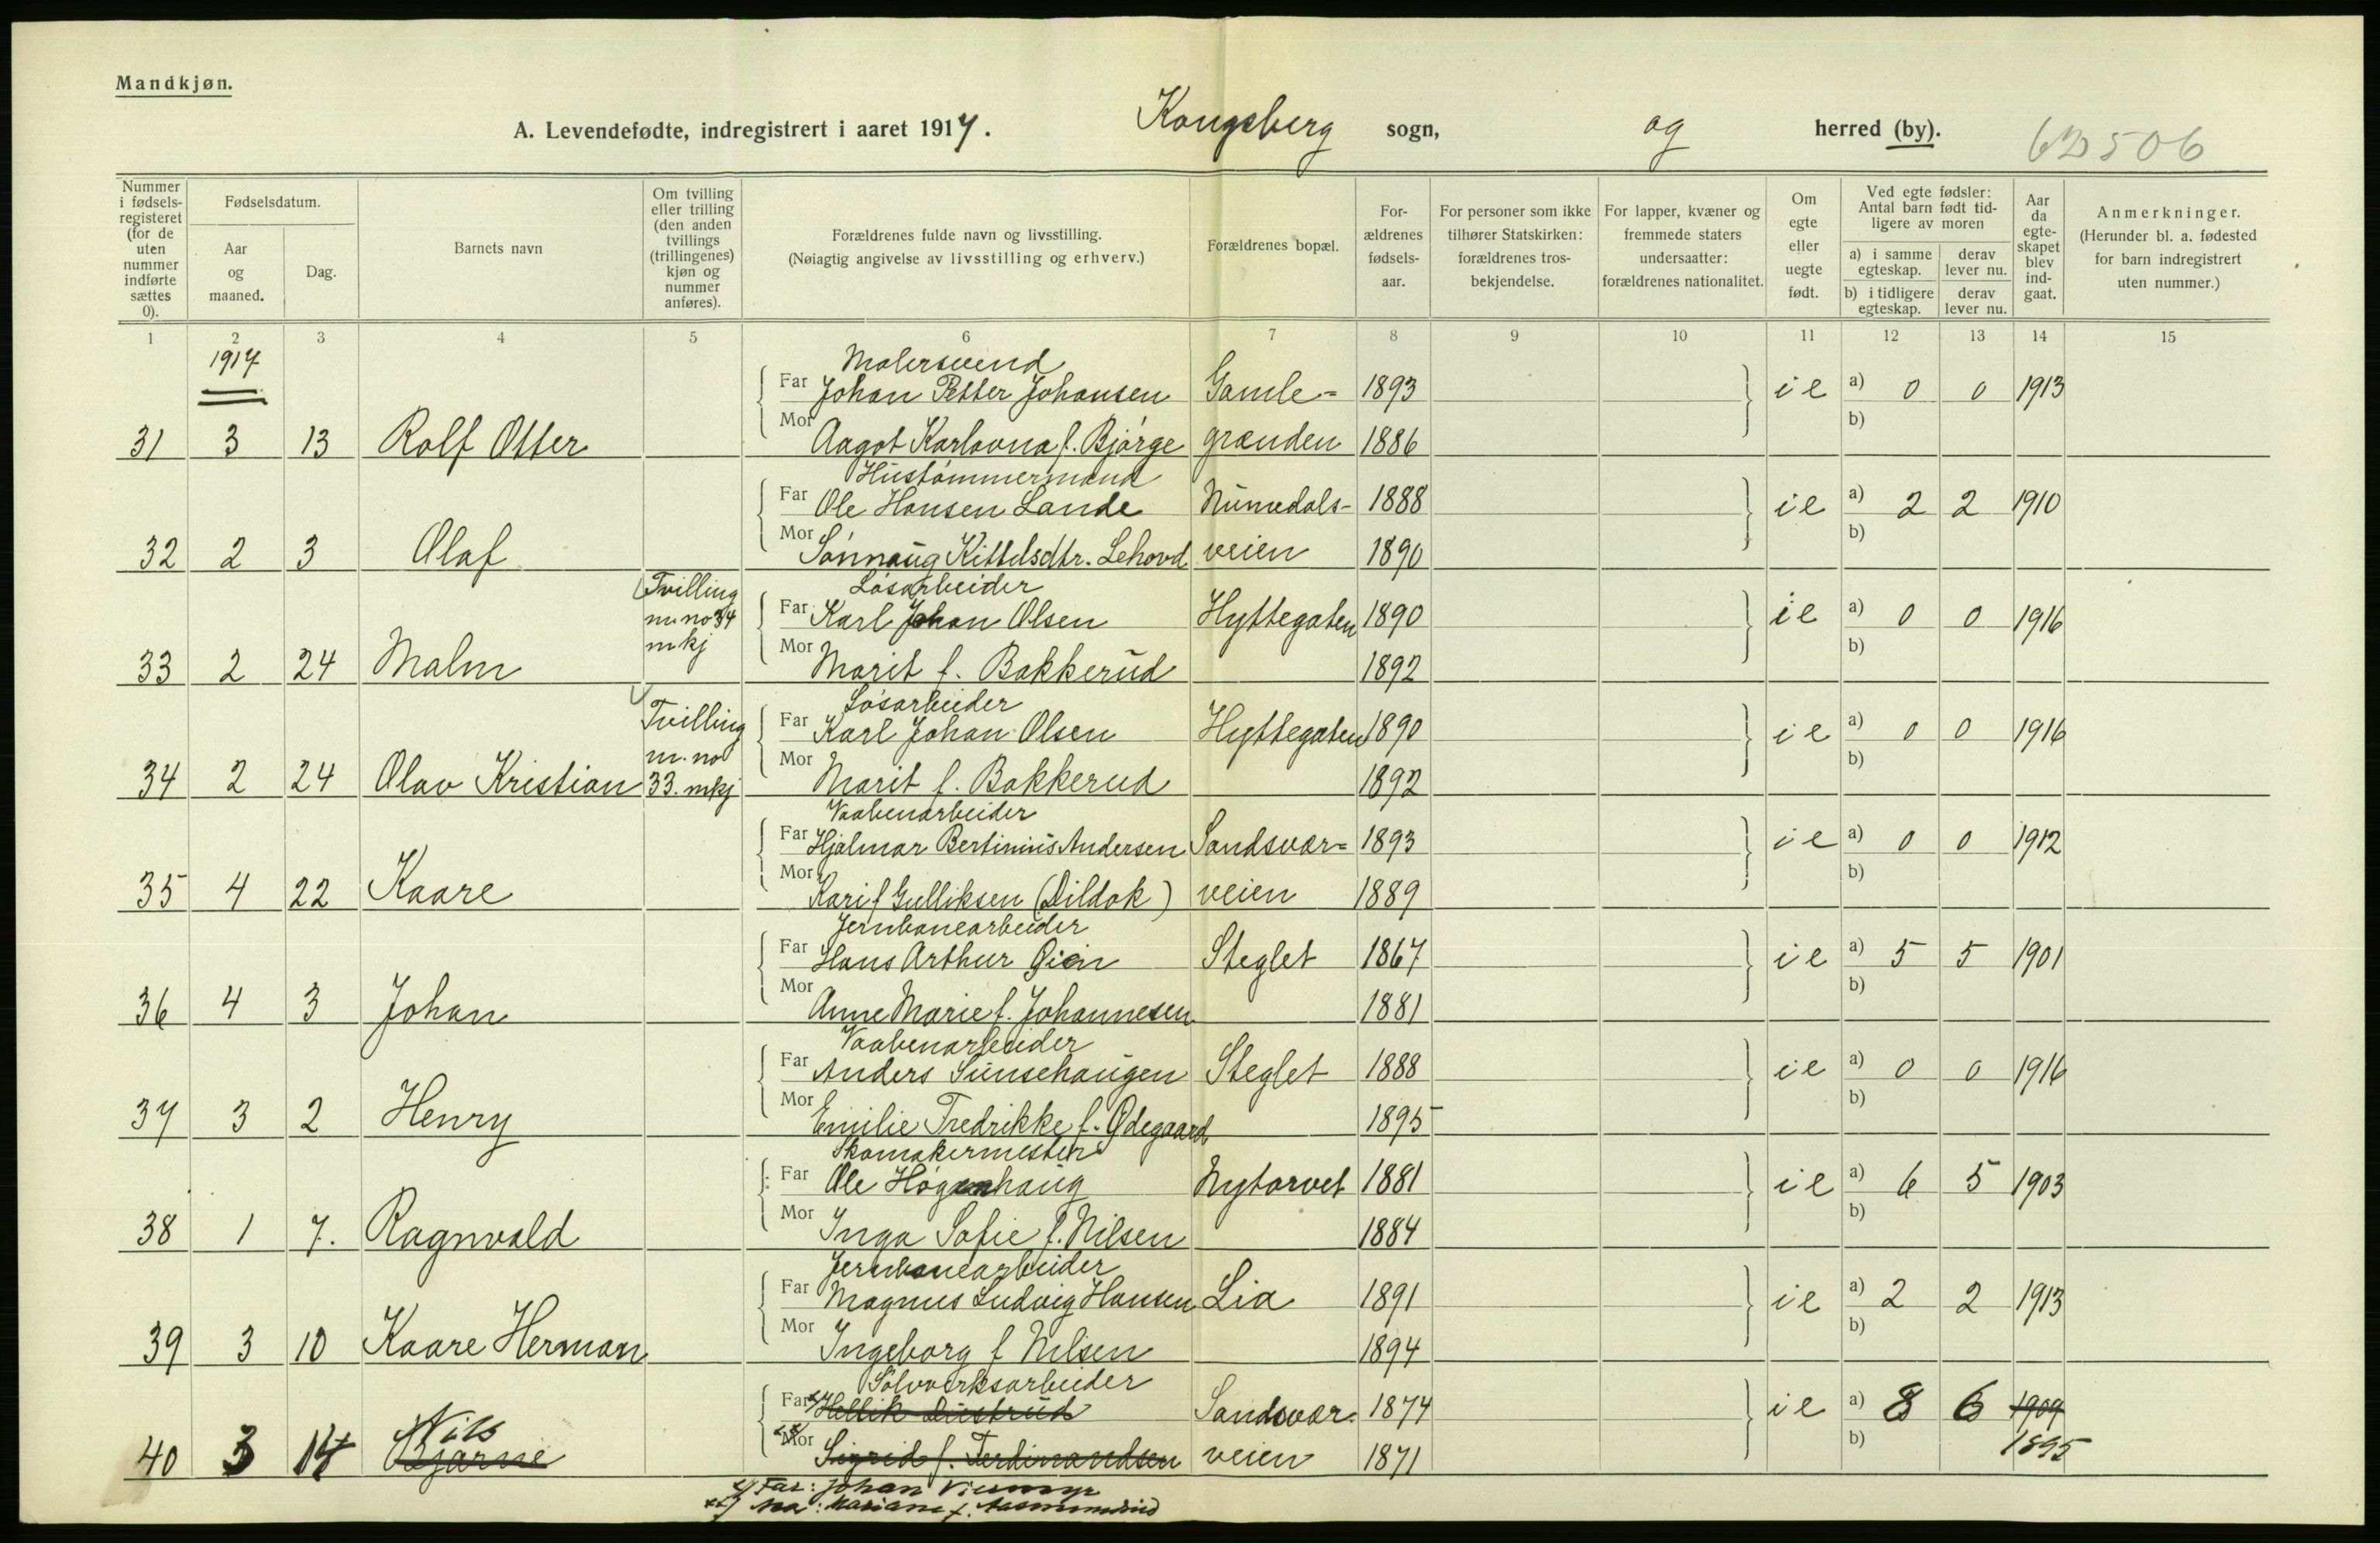 Mandkjøn.
A. Levendefødte, indregistrert i aaret 1917. Kongsberg sogn, og herred (by). 62506
Nummer i fødsels-registeret (for de uten nummer indførte sættes 0).
Fødselsdatum.
Aar og maaned.
Dag.
Barnets navn
Om tvilling eller trilling (den anden tvillings (trillingenes) kjøn og nummer anføres).
Forældrenes fulde navn og livsstilling.
(Nøiagtig angivelse av livsstilling og erhverv.)
Forældrenes bopæl.
For-ældrenes fødsels-aar.
For personer som ikke tilhører Statskirken: forældrenes tros-bekjendelse.
For lapper, kvæner og fremmede staters undersaatter: forældrenes nationalitet.
Om egte eller uegte født.
Ved egte fødsler: Antal barn født tid-ligere av moren
a) i samme egteskap. derav lever nu.
b) i tidligere egteskap. derav lever nu.
Aar da egte-skapet blev ind-gaat.
Anmerkninger.
(Herunder bl. a. fødested for barn indregistrert uten nummer.)
1 2 3 4 5 6 7 8 9 10 11 12 13 14 15
1917
Malersvend
Far Johan Petter Johansen Gamle- 1893 ie a) 0 0 1913
31 3 13 Rolf Otter Mor Aagot Karlovna f. Bjørge grænden 1886 b)
Hustømmermand
Far Ole Hansen Lande Numedals- 1888 ie a) 2 2 1910
32 2 3 Olaf Mor Sønnaug Kittelsdtr. Lehovd veien 1890 b)
Tvilling m. no 34 mkj
Løsarbeider
Far Karl Johan Olsen Hyttegaten 1890 ie a) 0 0 1916
33 2 24 Malm Mor Marit f. Bakkerud 1892 b)
Tvilling m. no 33. mkj
Løsarbeider
Far Karl Johan Olsen Hyttegaten 1890 ie a) 0 0 1916
34 2 24 Olav Kristian Mor Marit f. Bakkerud 1892 b)
Vaabenarbeider
Far Hjalmar Bertinius Andersen Sandsvær- 1893 ie a) 0 0 1912
35 4 22 Kaare Mor Kari f Gulliksen (Dildok) veien 1889 b)
Jernbanearbeider
Far Hans Arthur Øien Steglet 1867 ie a) 5 5 1901
36 4 3 Johan Mor Anne Marie f. Johannesen 1881 b)
Vaabenarbeider
Far Anders Sunsehaugen Steglet 1888 ie a) 0 0 1916
37 3 2 Henry Mor Emilie Fredrikke f. Ødegaard 1895 b)
Skomakermester
Far Ole Høgenhaug Nytorvet 1881 ie a) 6 5 1903
38 1 7. Ragnvald Mor Inga Sofie f. Nilsen 1884 b)
Jernbanearbeider
Far Magnus Ludvig Hansen Lia 1891 ie a) 2 2 1913
39 3 10 Kaare Herman Mor Ingeborg f Nilsen 1894 b)
Sølvverksarbeider
Far Hellik Sandsvær- 1874 ie a) 8 6 1909
Nils
40 3 14 Bjarne Mor Sigrid f. Ferdinandsen veien 1871 b) 1895
x) Far: Johan
xx) Mor: Mariane f. Aasmundrud